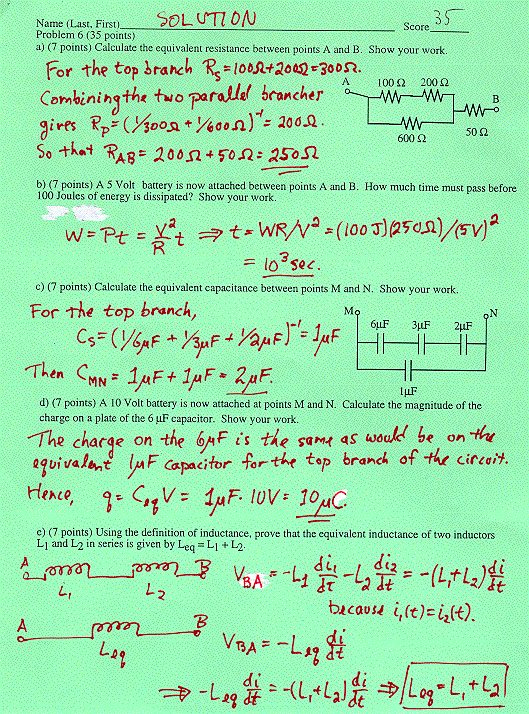 Name (Last, First) SOLUTION Score 35
Problem 6 (35 points)
a) (7 points) Calculate the equivalent resistance between points A and B. Show your work.
For the top branch Rs=100Ω+200Ω=300Ω.
Combining the two parallel brancher
gives Rp=(1/300Ω+1/600Ω)⁻¹=200Ω.
So that RAB=200Ω+50Ω=250Ω
A 100 Ω 200 Ω B
600 Ω 50 Ω
b) (7 points) A 5 Volt battery is now attached between points A and B. How much time must pass before
100 Joules of energy is dissipated? Show your work.
W=Pt=V²/R t ⇒ t=WR/V²=(100J)(250Ω)/(5V)²
=10³sec.
c) (7 points) Calculate the equivalent capacitance between points M and N. Show your work.
For the top branch,
Cs=(1/6µF+1/3µF+1/2µF)⁻¹=1µF
Then CMN=1µF+1µF=2µF.
M N
6µF 3µF 2µF
1µF
d) (7 points) A 10 Volt battery is now attached at points M and N. Calculate the magnitude of the
charge on a plate of the 6 µF capacitor. Show your work.
The charge on the 6µF is the same as would be on the
equivalent 1µF capacitor for the top branch of the circuit.
Hence, q=CeqV=1µF·10V=10µC.
e) (7 points) Using the definition of inductance, prove that the equivalent inductance of two inductors
L1 and L2 in series is given by Leq = L1 + L2.
A B VBA=-L1 di1/dt -L2 di2/dt = -(L1+L2)di/dt
L1 L2
because i1(t)=i2(t).
A B
Leq VBA=-Leq di/dt
⇒ -Leq di/dt=-(L1+L2)di/dt ⇒ Leq=L1+L2